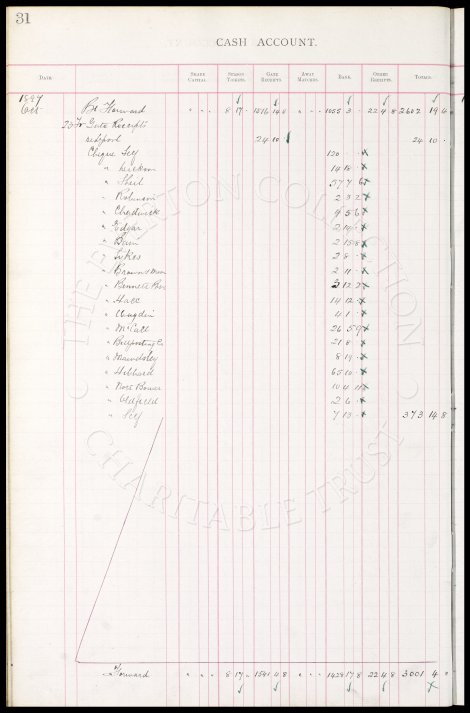 31
CASH ACCOUNT.
DATE SHARE CAPITAL. SEASON TICKETS. GATE RECEIPTS. AWAY MATCHES. BANK. OTHER RECEIPTS. TOTALS.
1897
Oct Bt Forward 8 17 - 1516 14 8 1055 3 - 22 4 8 2602 19 4
23 Gate Receipts
24 10 24 10 -
Cheque 120
" 14 18
" Sheil 57 7 6
" Robinson 2 3 2
" Chadwick 9 5 6
" Edgar
" Bain 2 15 8
" Sykes 2 8 -
" 2 11 -
" Bennett Bros
" Hall 14 12 -
" 4 1 -
" McCall 26 5 9
" Billposting Co 21 8
" Mawdsley 8 19
" Hibbard 65 10
" 10 4 11
" Oldfield 2 6
" 7 13 373 14 8
Forward 8 17 - 1541 4 8 1428 17 8 22 4 8 3001 4 -
THE EVERTON COLLECTION
CHARITABLE TRUST